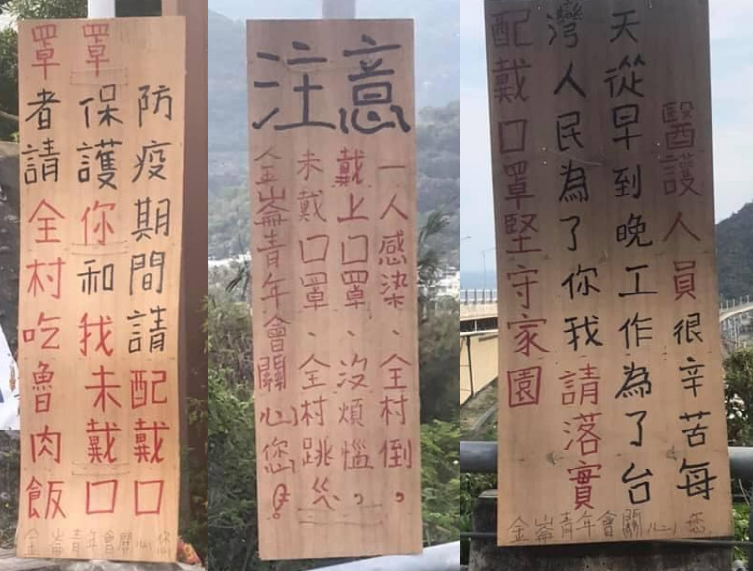 防疫期間請配戴口
罩保護你和我未戴口
罩者請全村吃魯肉飯
金崙青年會關心您
注意
一人感染、全村倒。
戴上口罩、沒煩惱。
未戴口罩、全村跳
金崙青年會關心您
醫護人員很辛苦每
天從早到晚工作為了台
灣人民為了你我請落實
配戴口罩堅守家園
金崙青年會關心您